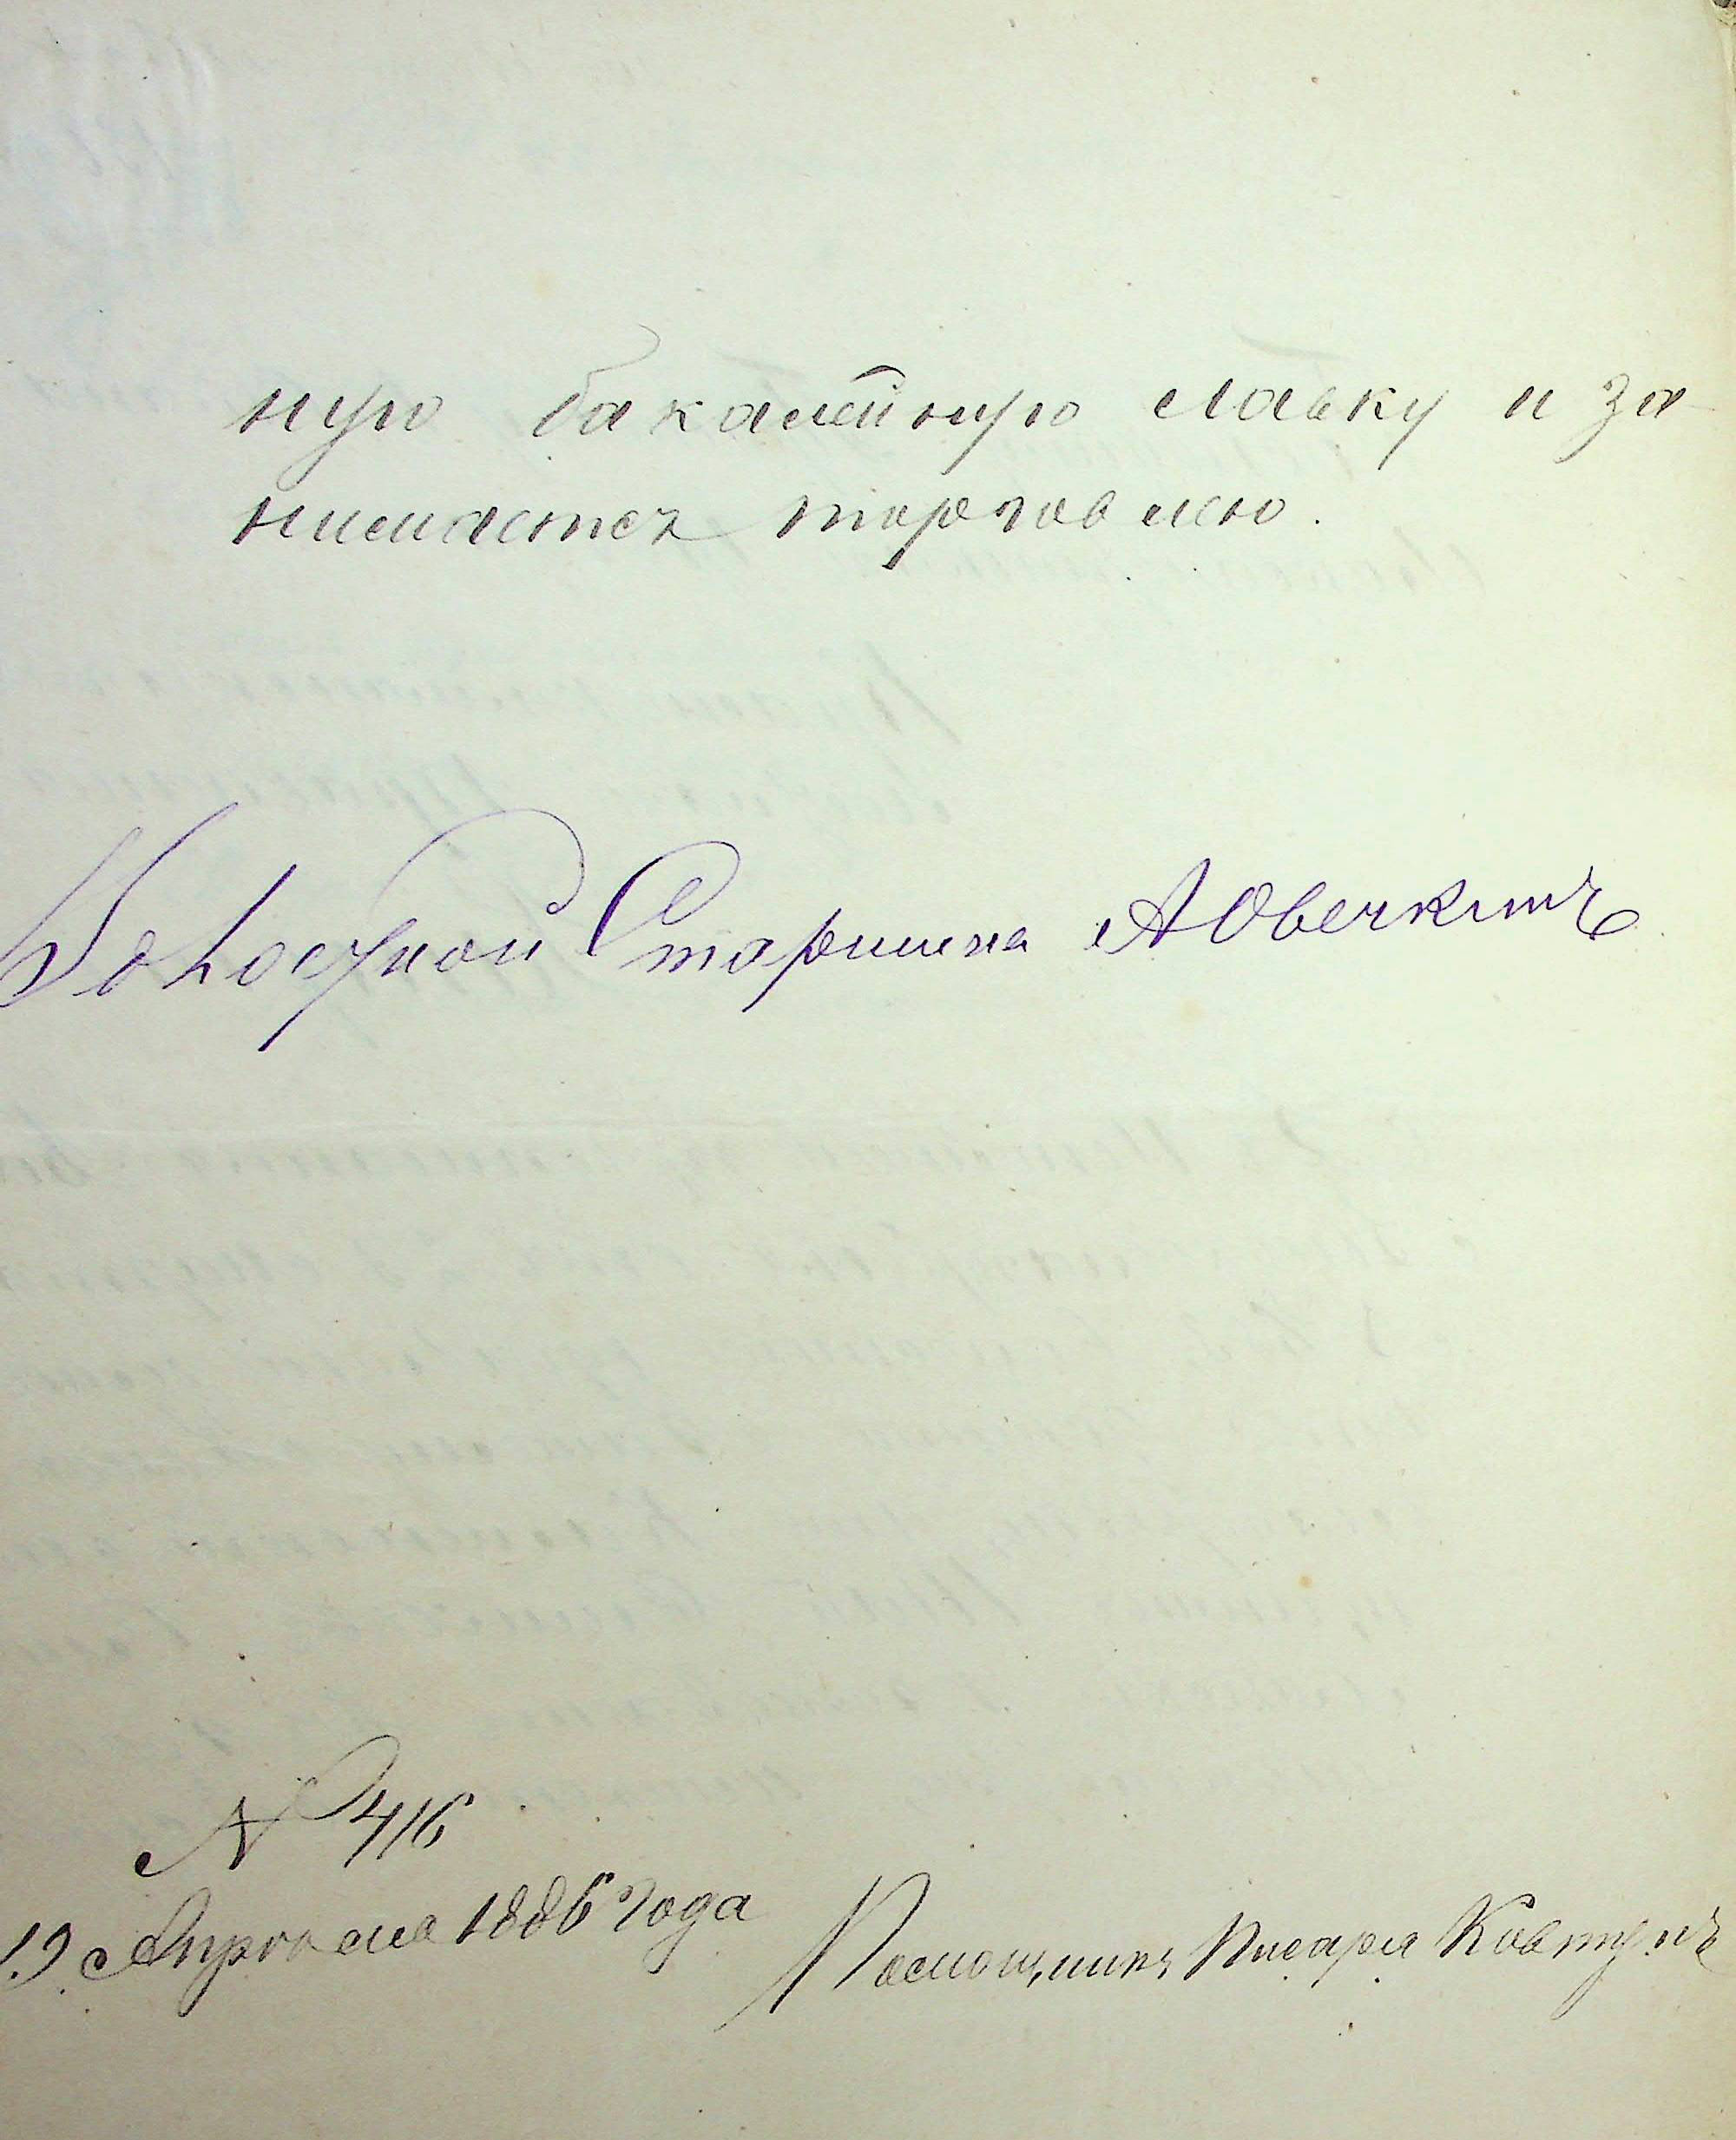 ную бакалейную лавку и за-
нимается торговлею.
Волостной Старшина А Овечкинъ
№ 416
19 Апреля 1886 года
Помощникъ Писаря Ковтунъ